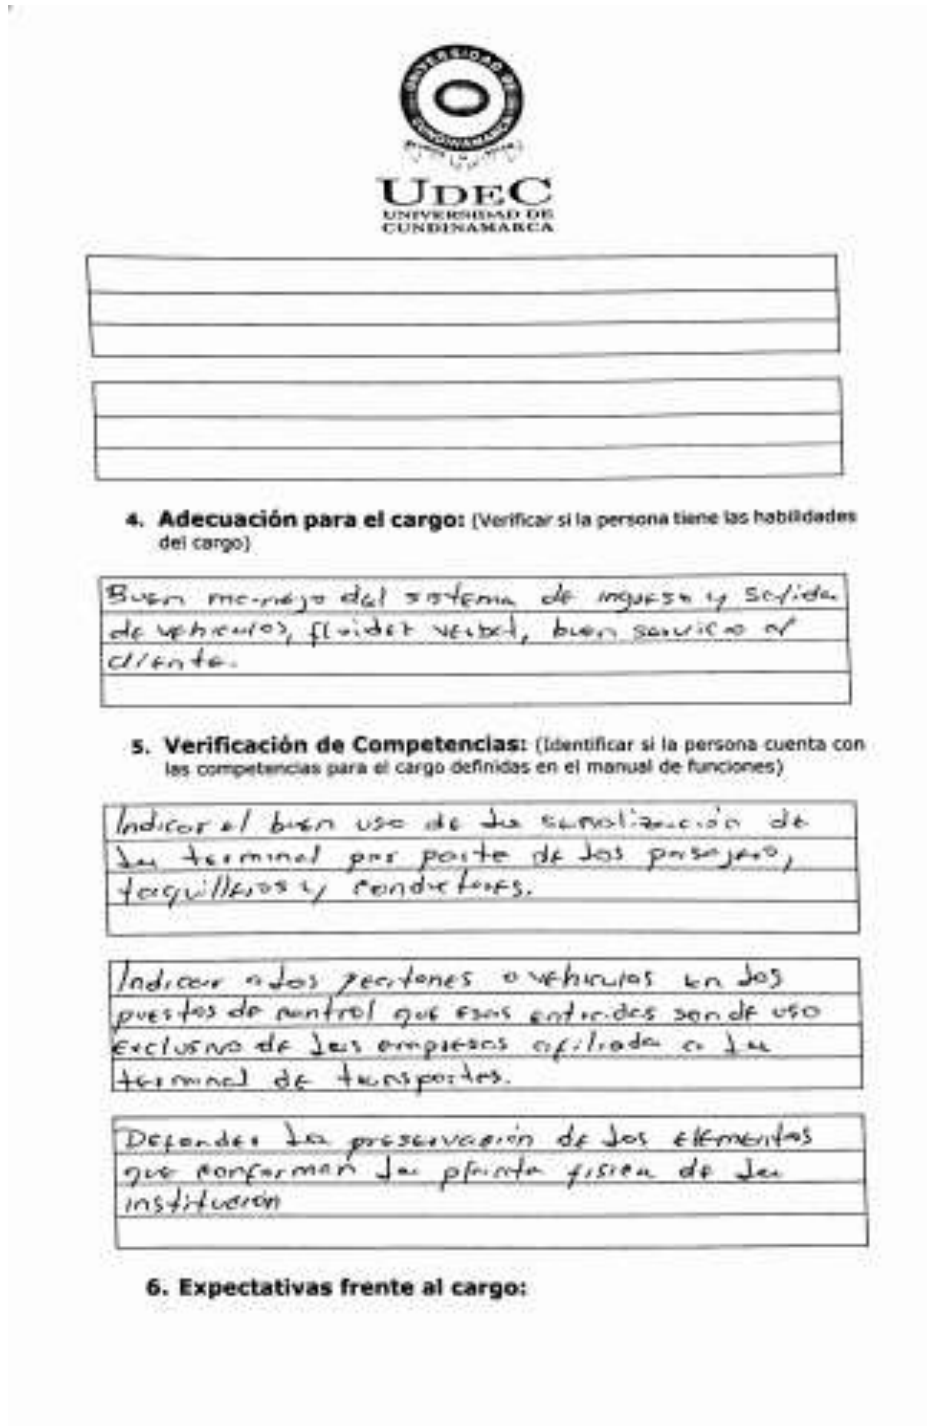 UNIVERSIDAD DE
CUNDINAMARCA
UDEC
UNIVERSIDAD DE
CUNDINAMARCA
4. Adecuación para el cargo: (Verificar si la persona tiene las habilidades
del cargo)
Buen manejo del sistema de ingreso y salida
de vehiculos, fluidez verbal, buen servicio al
cliente.
5. Verificación de Competencias: (Identificar si la persona cuenta con
las competencias para el cargo definidas en el manual de funciones)
Indicar el buen uso de la señalización de
la terminal por parte de los pasajeros,
taquilleros y conductores.
Indicar a los peatones o vehiculos en los
puestos de control que esas entradas son de uso
exclusivo de las empresas afiliada a la
terminal de transportes.
Defender la preservación de los elementos
que conforman la planta fisica de la
institución
6. Expectativas frente al cargo: